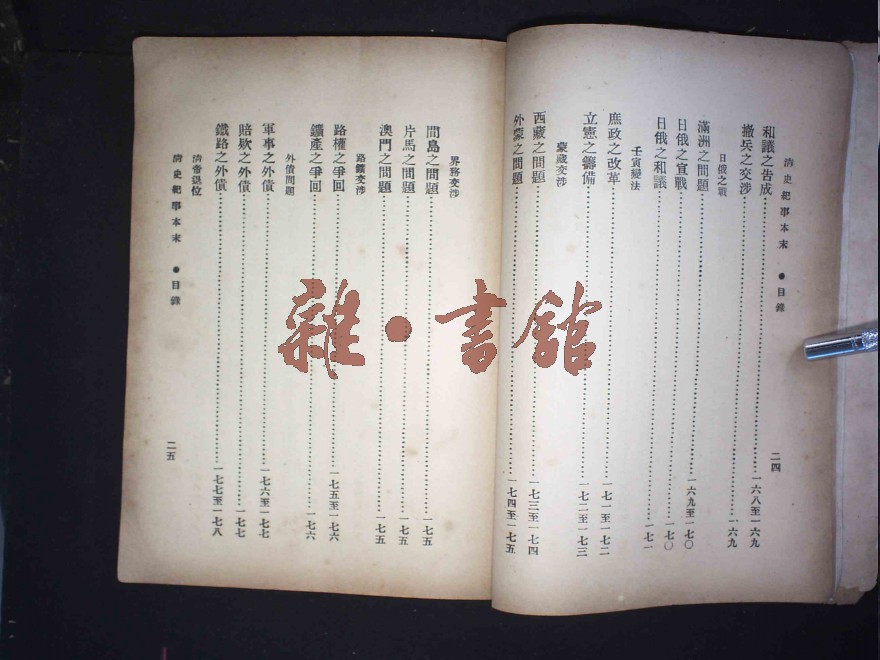 清史紀事本末 ● 目錄 二四
和議之告成 一六八至一六九
撤兵之交涉 一六九
日俄之戰
滿洲之問題 一六九至一七〇
日俄之宣戰 一七〇
日俄之和議 一七一
壬寅變法
庶政之改革 一七一至一七二
立憲之籌備 一七二至一七三
蒙藏交涉
西藏之問題 一七三至一七四
外蒙之問題 一七四至一七五
界務交涉
間島之問題 一七五
片馬之問題 一七五
澳門之問題 一七五
路鑛交涉
路權之爭回 一七五至一七六
鑛產之爭回 一七六
外債問題
軍事之外債 一七六至一七七
賠欵之外債 一七七
鐵路之外債 一七七至一七八
清帝退位
清史紀事本末 ● 目錄 二五
雜·書館